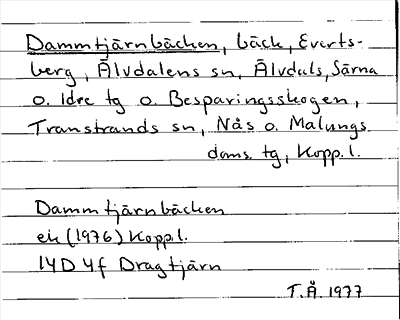 Dammtjärnbäcken, bäck, Everts-
berg, Älvdalens sn, Älvdals, Särna
o. Idre tg o. Besparingsskogen,
Transtrands sn, Nås o. Malungs
doms. tg, Kopp. l.
Dammtjärnbäcken
ek (1976) Kopp l.
14D 4f Dragtjärn
T.Å. 1977